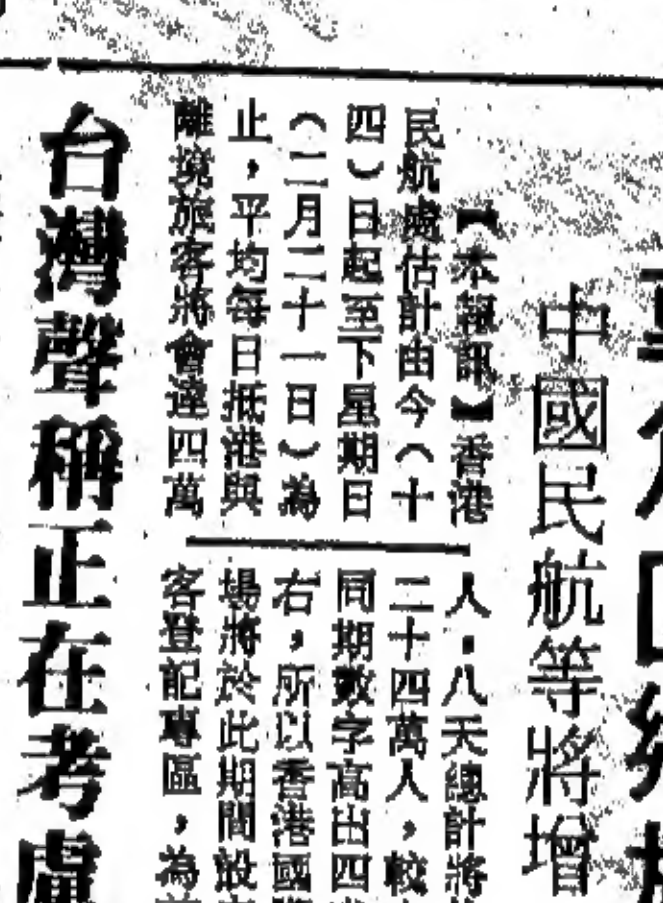 中國民航等將增
【本報訊】香港
民航處估計由今（十
四）日起至下星期日
（二月二十一日）為
止，平均每日抵港與
離境旅客將會達四萬
人，八天總計將
二十四萬人，較
同期數字高出四
右，所以香港國
場將於此期間設
客登記專區，為
台灣聲稱正在考慮